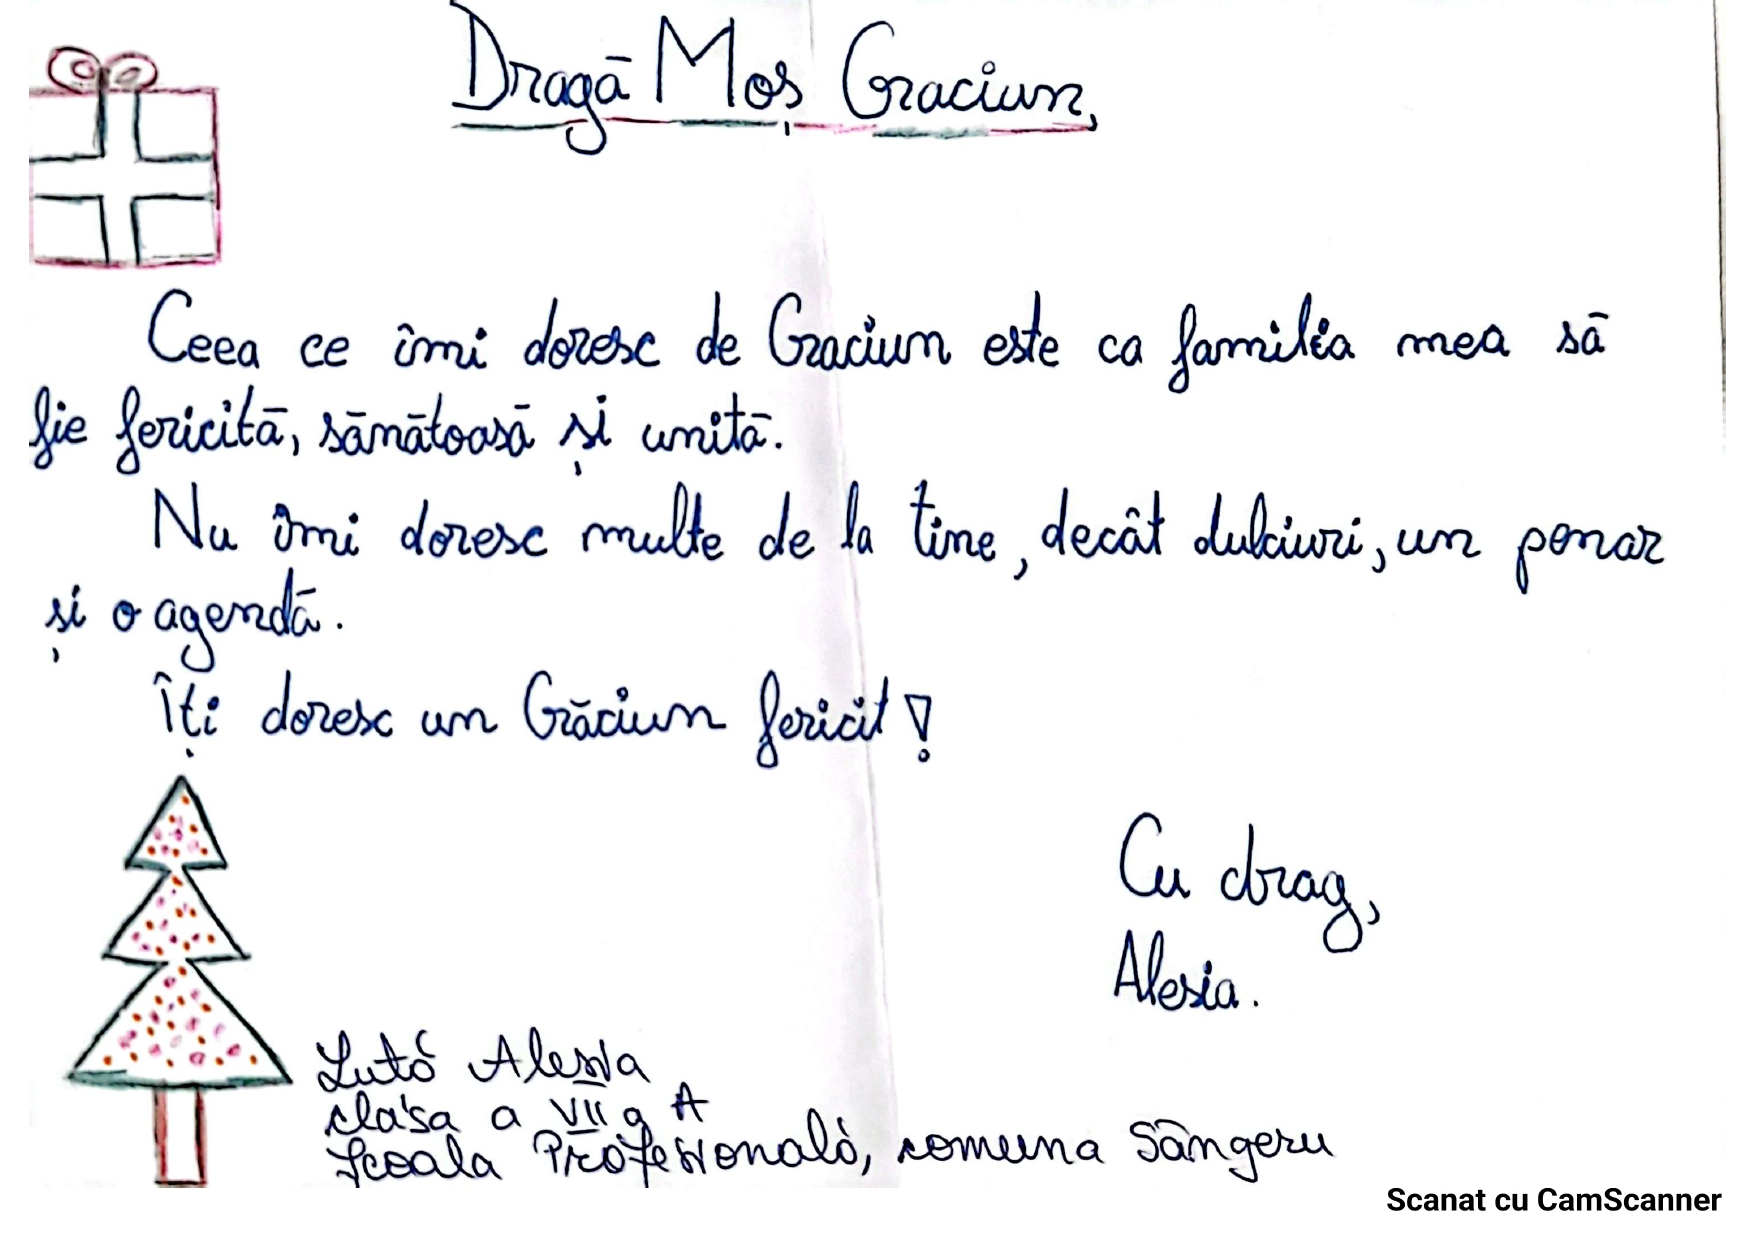 Dragă Moș Craciun,
Ceea ce îmi doresc de Craciun este ca familia mea să
fie fericită, sănătoasă și unită.
Nu îmi doresc multe de la tine, decât dulciuri, un penar
și o agendă.
Îți doresc un Crăciun fericit!
Cu drag,
Alesia.
Lută Alesia
clasa a VII a A
Școala Profesională, comuna Sângeru
Scanat cu CamScanner